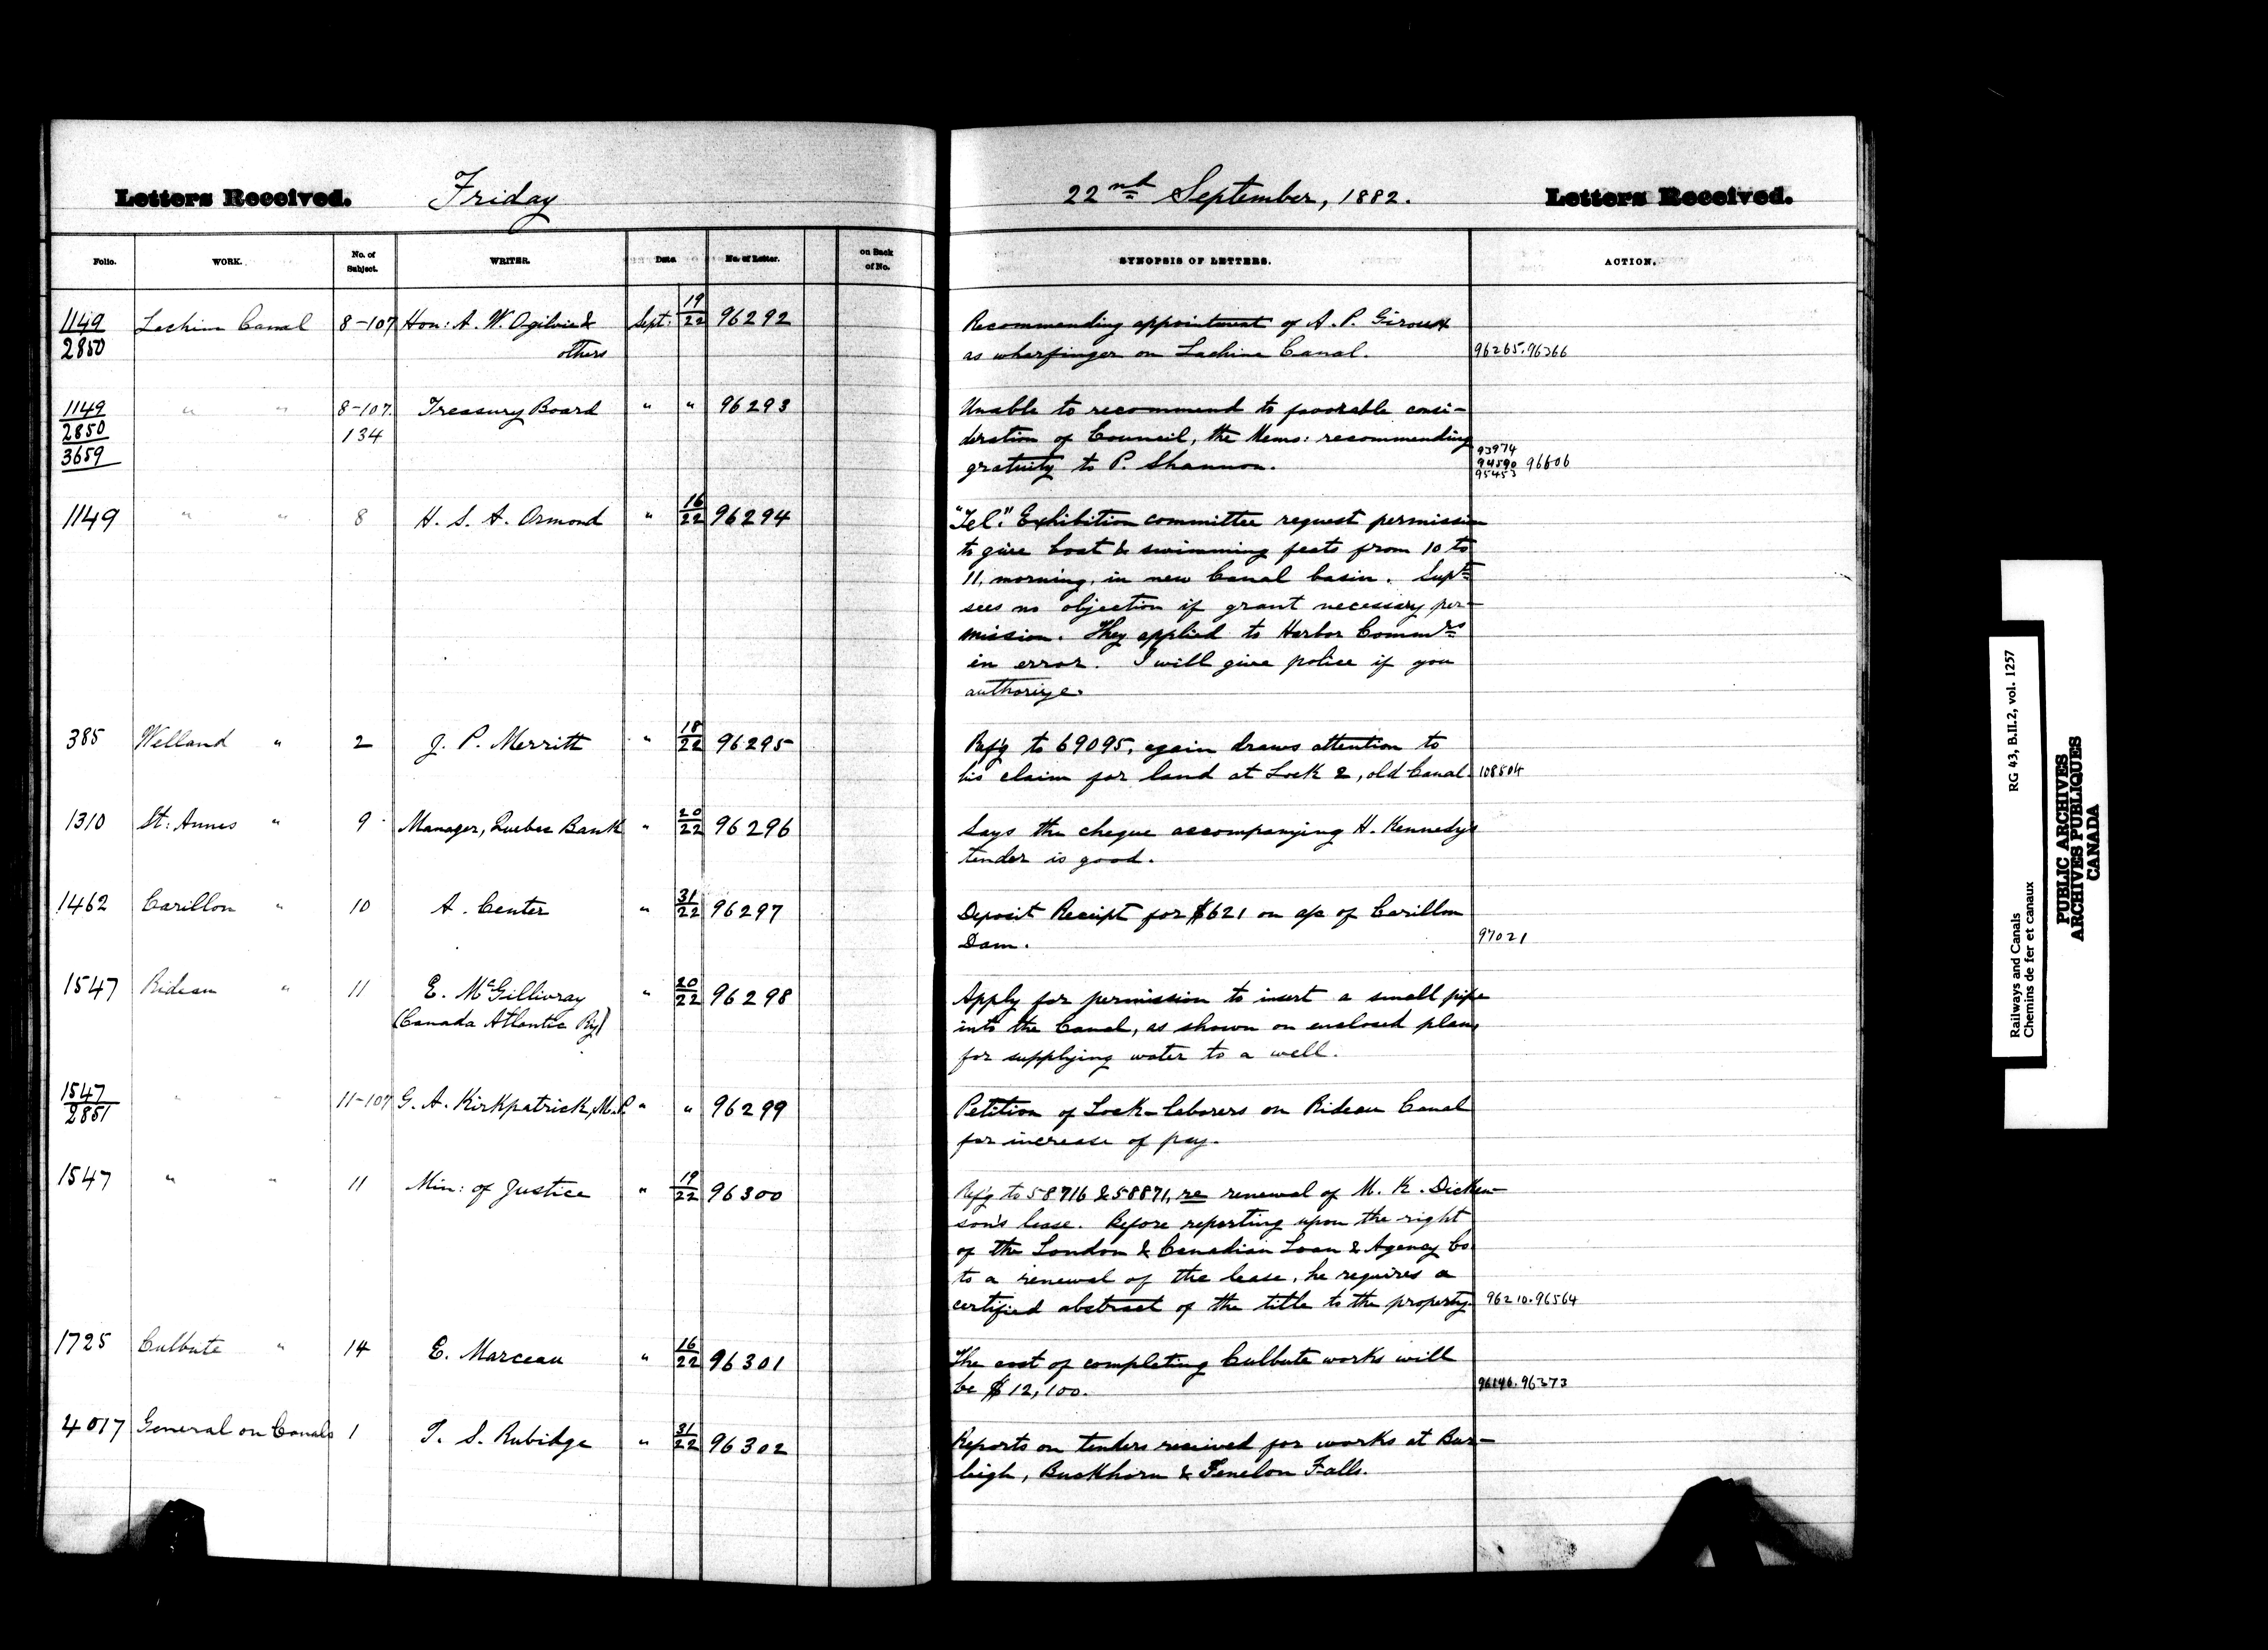 Letters Received. Friday
22nd September, 1882. Letters Received.
Folio. WORK. No. of Subject. WRITER. Date. No. of Letter. on Back of No. SYNOPSIS OF LETTERS. ACTION.
1149 Lachine Canal 8-107 Hon: A. W. Ogilvie & Sept: 19/22 96292 Recommending appointment of A. P. Giroux
2850 others as wharfinger on Lachine Canal. 96265.96366
1149 " " 8-107. Treasury Board " " 96293 Unable to recommend to favorable consi-
2850 134 deration of Council, the Memo: recommending 93974
3659 gratuity to P. Shannon. 94590 96606
95453
1149 " " 8 H. S. A. Ormond " 16/22 96294 "Tel." Exhibition committee request permission
to give boat & swimming feats from 10 to
11, morning, in new Canal basin. Supt
sees no objection if grant necessary per-
mission. They applied to Harbor Commrs
in error. I will give police if you
authorize.
385 Welland " 2 J. P. Merritt " 18/22 96295 Ref'g to 69095, again draws attention to
his claim for land at Lock 2, old Canal. 108504
1310 St: Annes " 9 Manager, Quebec Bank " 20/22 96296 Says the cheque accompanying H. Kennedy's
tender is good.
1462 Carillon " 10 A. Center " 31/22 96297 Deposit Receipt for $621 on a/c of Carillon
Dam. 97021
1547 Rideau " 11 E. McGillivray " 20/22 96298 Apply for permission to insert a small pipe
(Canada Atlantic Ry) into the Canal, as shown on enclosed plan,
for supplying water to a well.
1547 " " 11-107 G. A. Kirkpatrick, M.P. " " 96299 Petition of Lock-laborers on Rideau Canal
2851 for increase of pay.
1547 " " 11 Min: of Justice " 19/22 96300 Ref'g to 58716 & 58871, re renewal of M. K. Dicken-
son's lease. Before reporting upon the right
of the London & Canadian Loan & Agency Co.
to a renewal of the lease, he requires a
certified abstract of the title to the property. 96210.96564
1725 Culbute " 14 E. Marceau " 16/22 96301 The cost of completing Culbute works will
be $12,100. 96146.96373
4017 General on Canals 1 T. S. Rubidge " 31/22 96302 Reports on tenders received for works at Bur-
leigh, Buckhorn & Fenelon Falls.
Railways and Canals RG 43, B.II.2, vol. 1257
Chemins de fer et canaux
PUBLIC ARCHIVES
ARCHIVES PUBLIQUES
CANADA